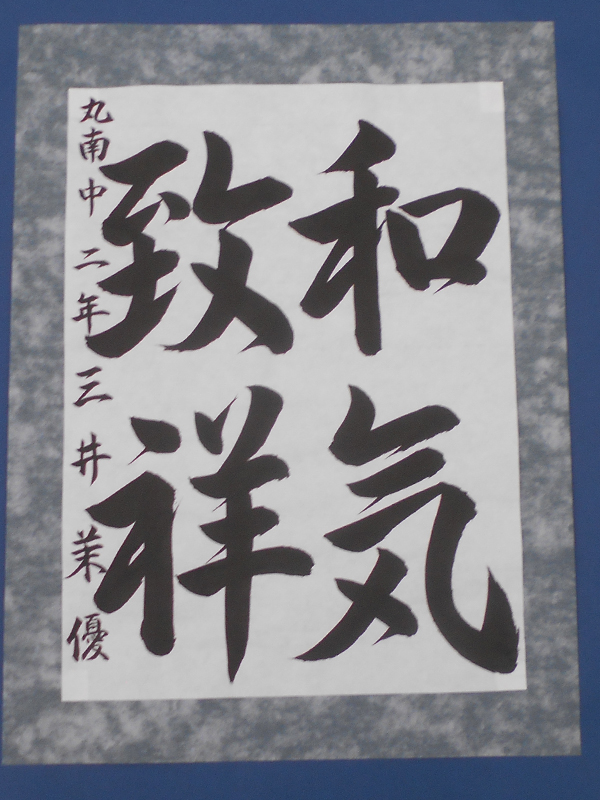 和気
致祥
丸南中二年三井茉優